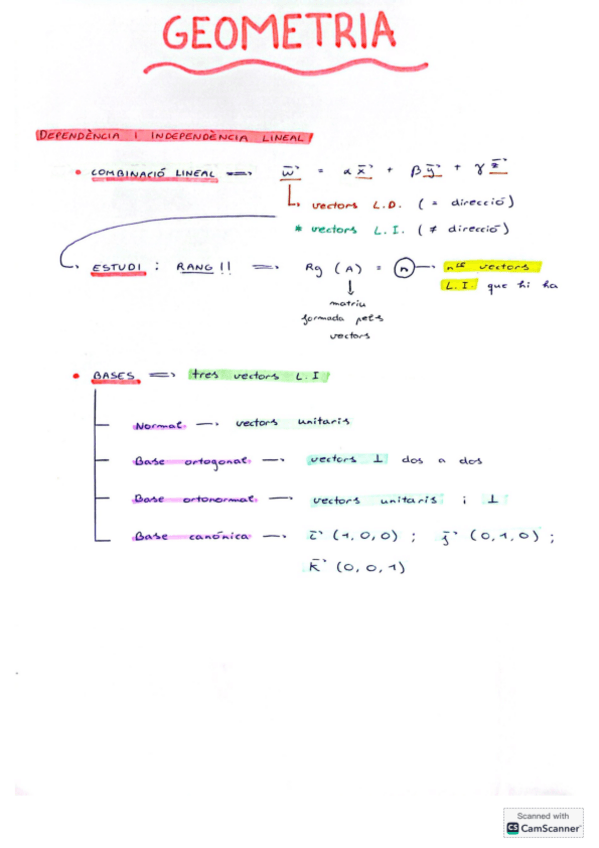 GEOMETRIA
DEPENDÈNCIA I INDEPENDÈNCIA LINEAL
• COMBINACIÓ LINEAL => w⃗ = α x⃗ + β y⃗ + γ z⃗
↳ vectors L.D. (= direcció)
* vectors L.I. (≠ direcció)
ESTUDI : RANG!! => Rg (A) = n → nre vectors
L.I. que hi ha
↓
matriu
formada pels
vectors
• BASES => tres vectors L.I
Normal → vectors unitaris
Base ortogonal → vectors ⊥ dos a dos
Base ortonormal → vectors unitaris i ⊥
Base canónica → i⃗ (1,0,0) ; j⃗ (0,1,0) ;
k⃗ (0,0,1)
Scanned with
CS CamScanner